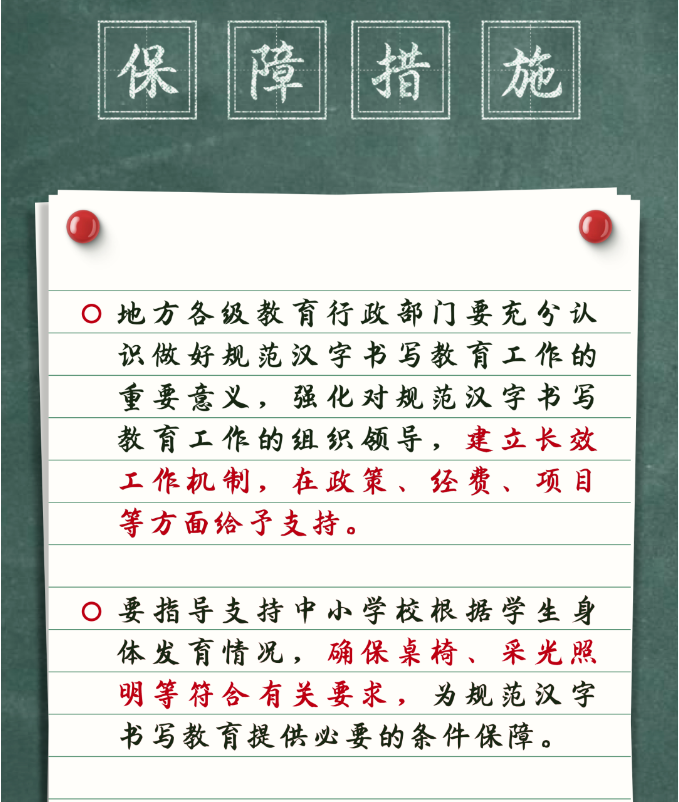 保障措施
地方各级教育行政部门要充分认
识做好规范汉字书写教育工作的
重要意义，强化对规范汉字书写
教育工作的组织领导，建立长效
工作机制，在政策、经费、项目
等方面给予支持。
要指导支持中小学校根据学生身
体发育情况，确保桌椅、采光照
明等符合有关要求，为规范汉字
书写教育提供必要的条件保障。